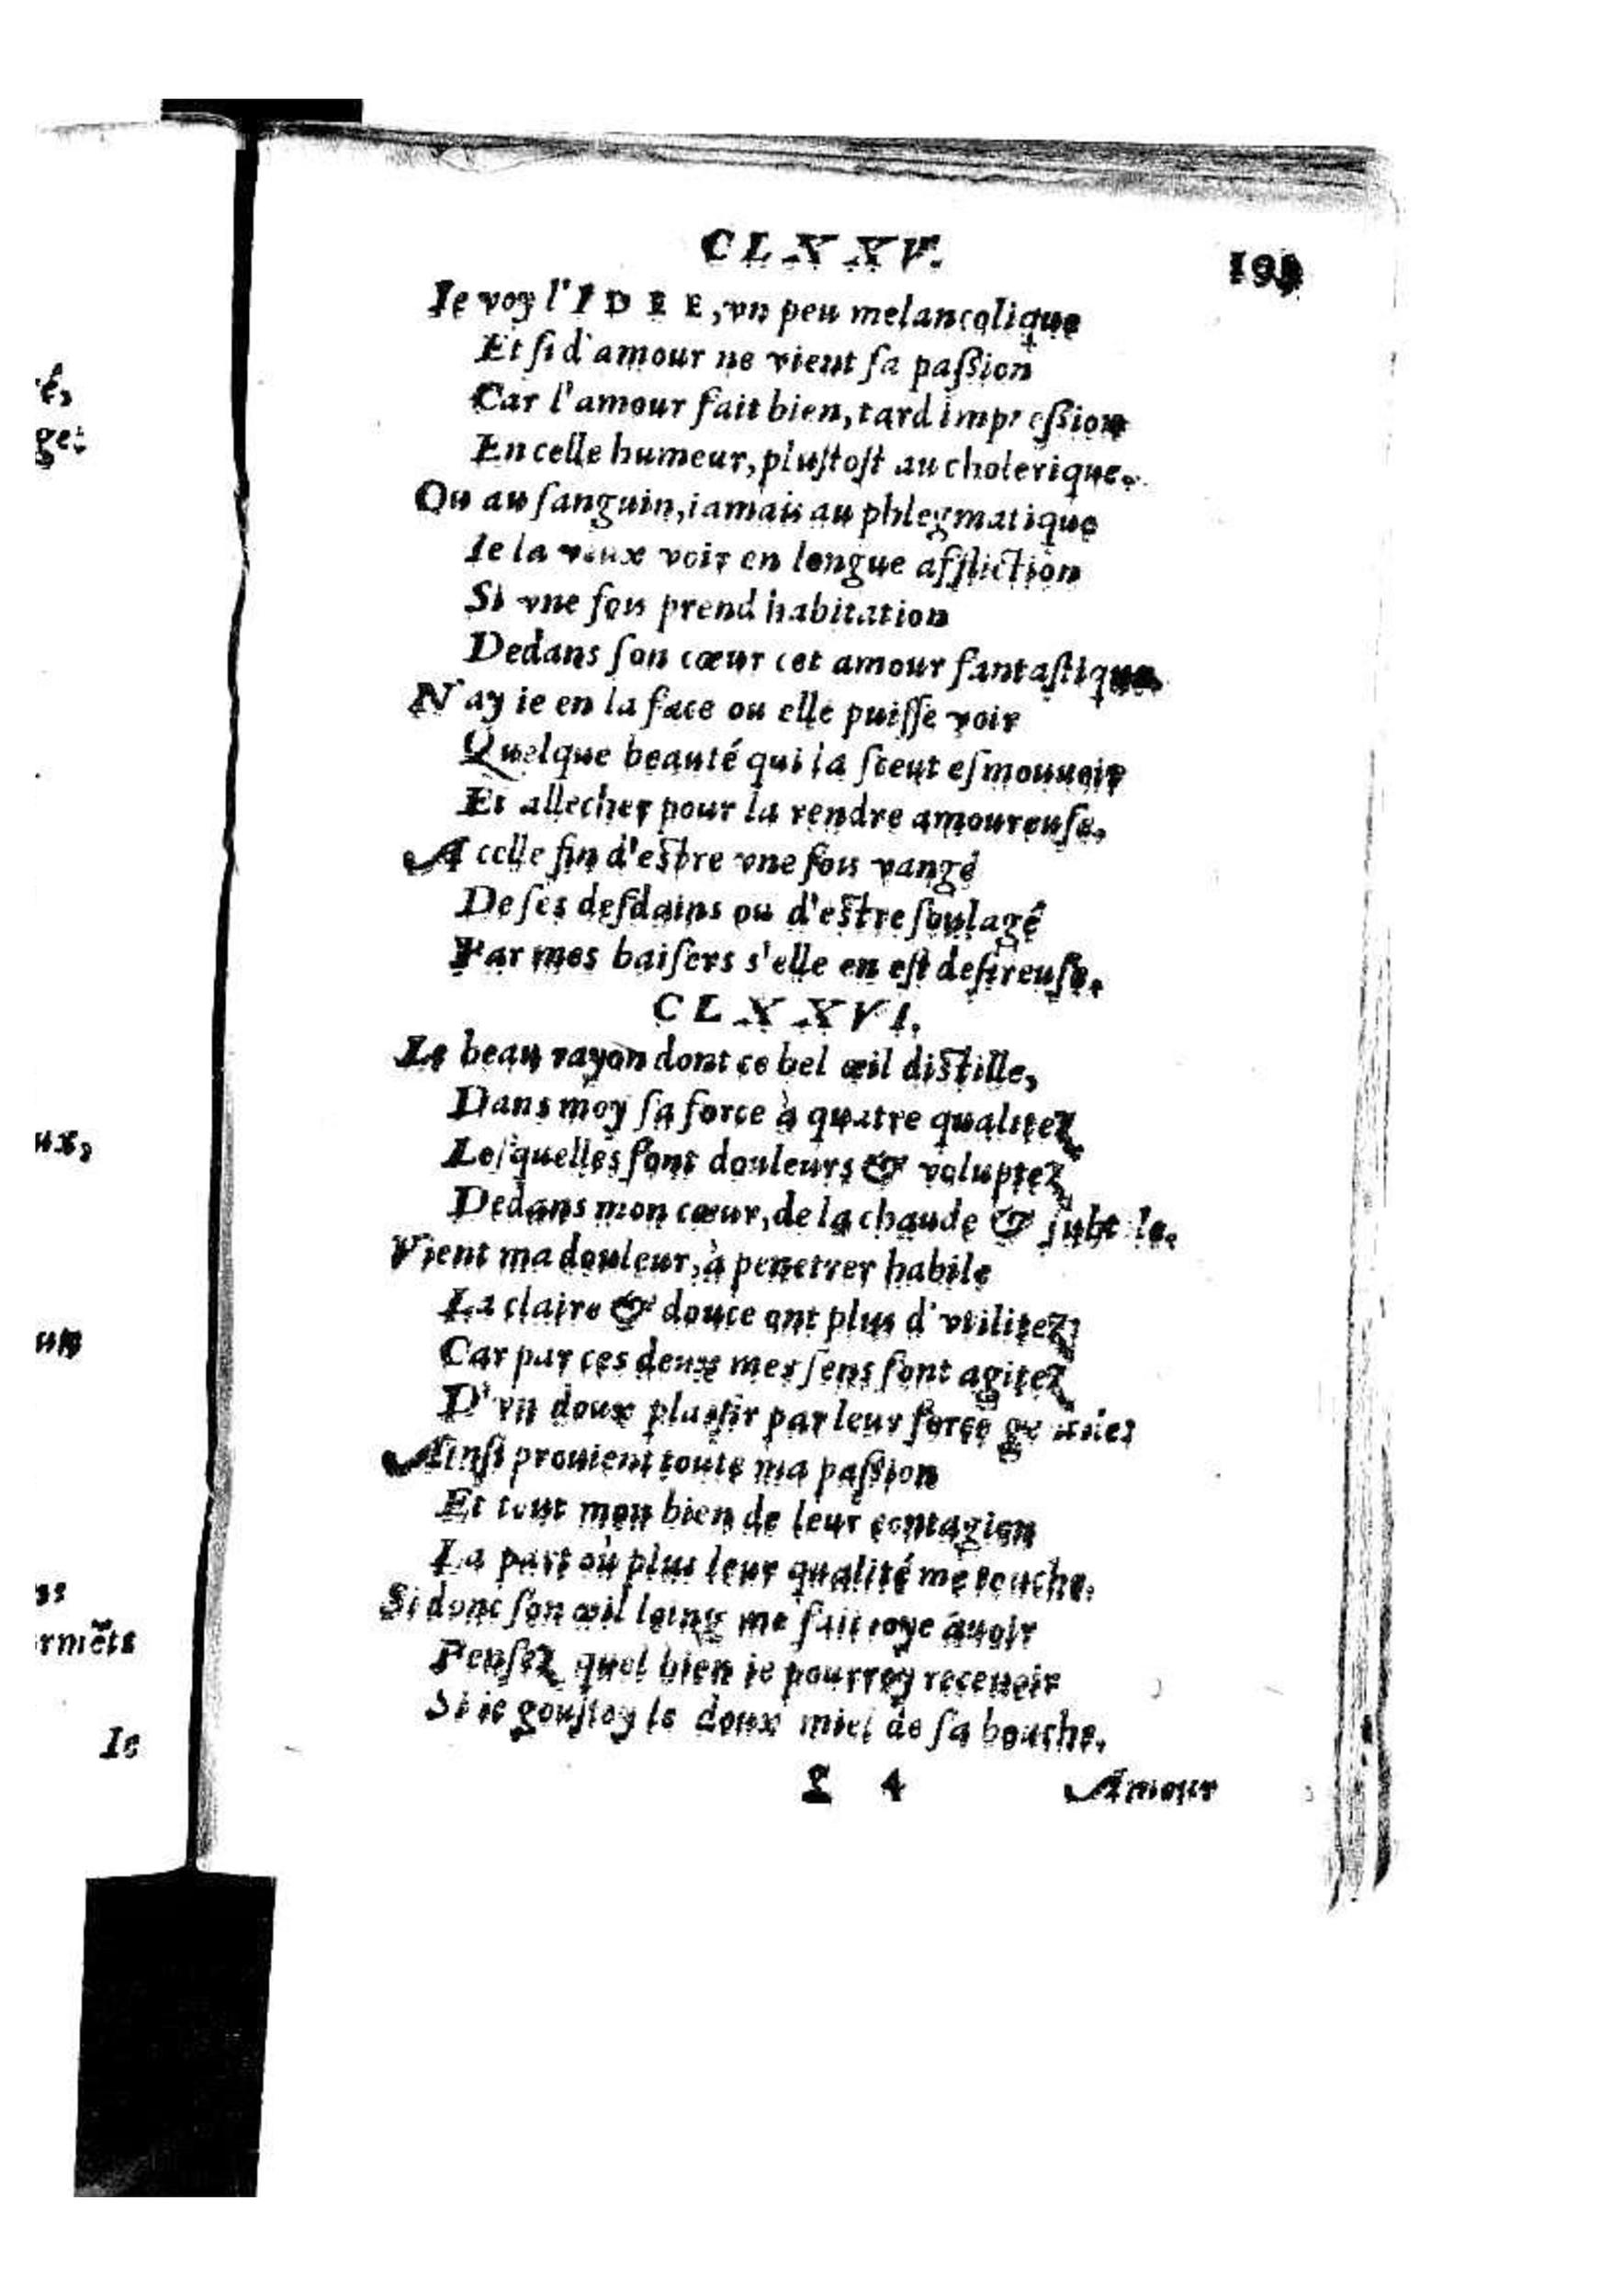 é,
get
ux,
un
ns
rmẽts
Ie
CLXXV.
Ie voy l'IDEE, vn peu melancolique
Et si d'amour ne vient sa passion
Car l'amour fait bien, tard impression
En celle humeur, plustost au cholerique.
Qu au sanguin, iamais au phlegmatique
Ie la veux voir en longue affliction
Si vne fois prend habitation
Dedans son cœur cet amour fantastique
N'ay ie en la face ou elle puisse voir
Quelque beauté qui la sceut esmouuoir
Et allecher pour la rendre amoureuse.
A celle fin d'estre vne fois vangé
De ses desdains ou d'estre soulagé
Par mes baisers s'elle en est desireuse.
CLXXVI.
Le beau rayon dont ce bel œil distille,
Dans moy sa force à quatre qualitez
Lesquelles sont douleurs & voluptez
Dedans mon cœur, de la chaude & subtile.
Vient ma douleur, à penetrer habile
La claire & douce ont plus d'vtilitez,
Car par ces deux mes sens sont agitez
D'vn doux plaisir par leur force
Ainsi prouient toute ma passion
Et tout mon bien de leur contagion
La part où plus leur qualité me touche.
Si donc son œil loing me fait ioye auoir
Pensez quel bien ie pourroy receuoir
Si ie goustoy le doux miel de sa bouche.
4
Amour